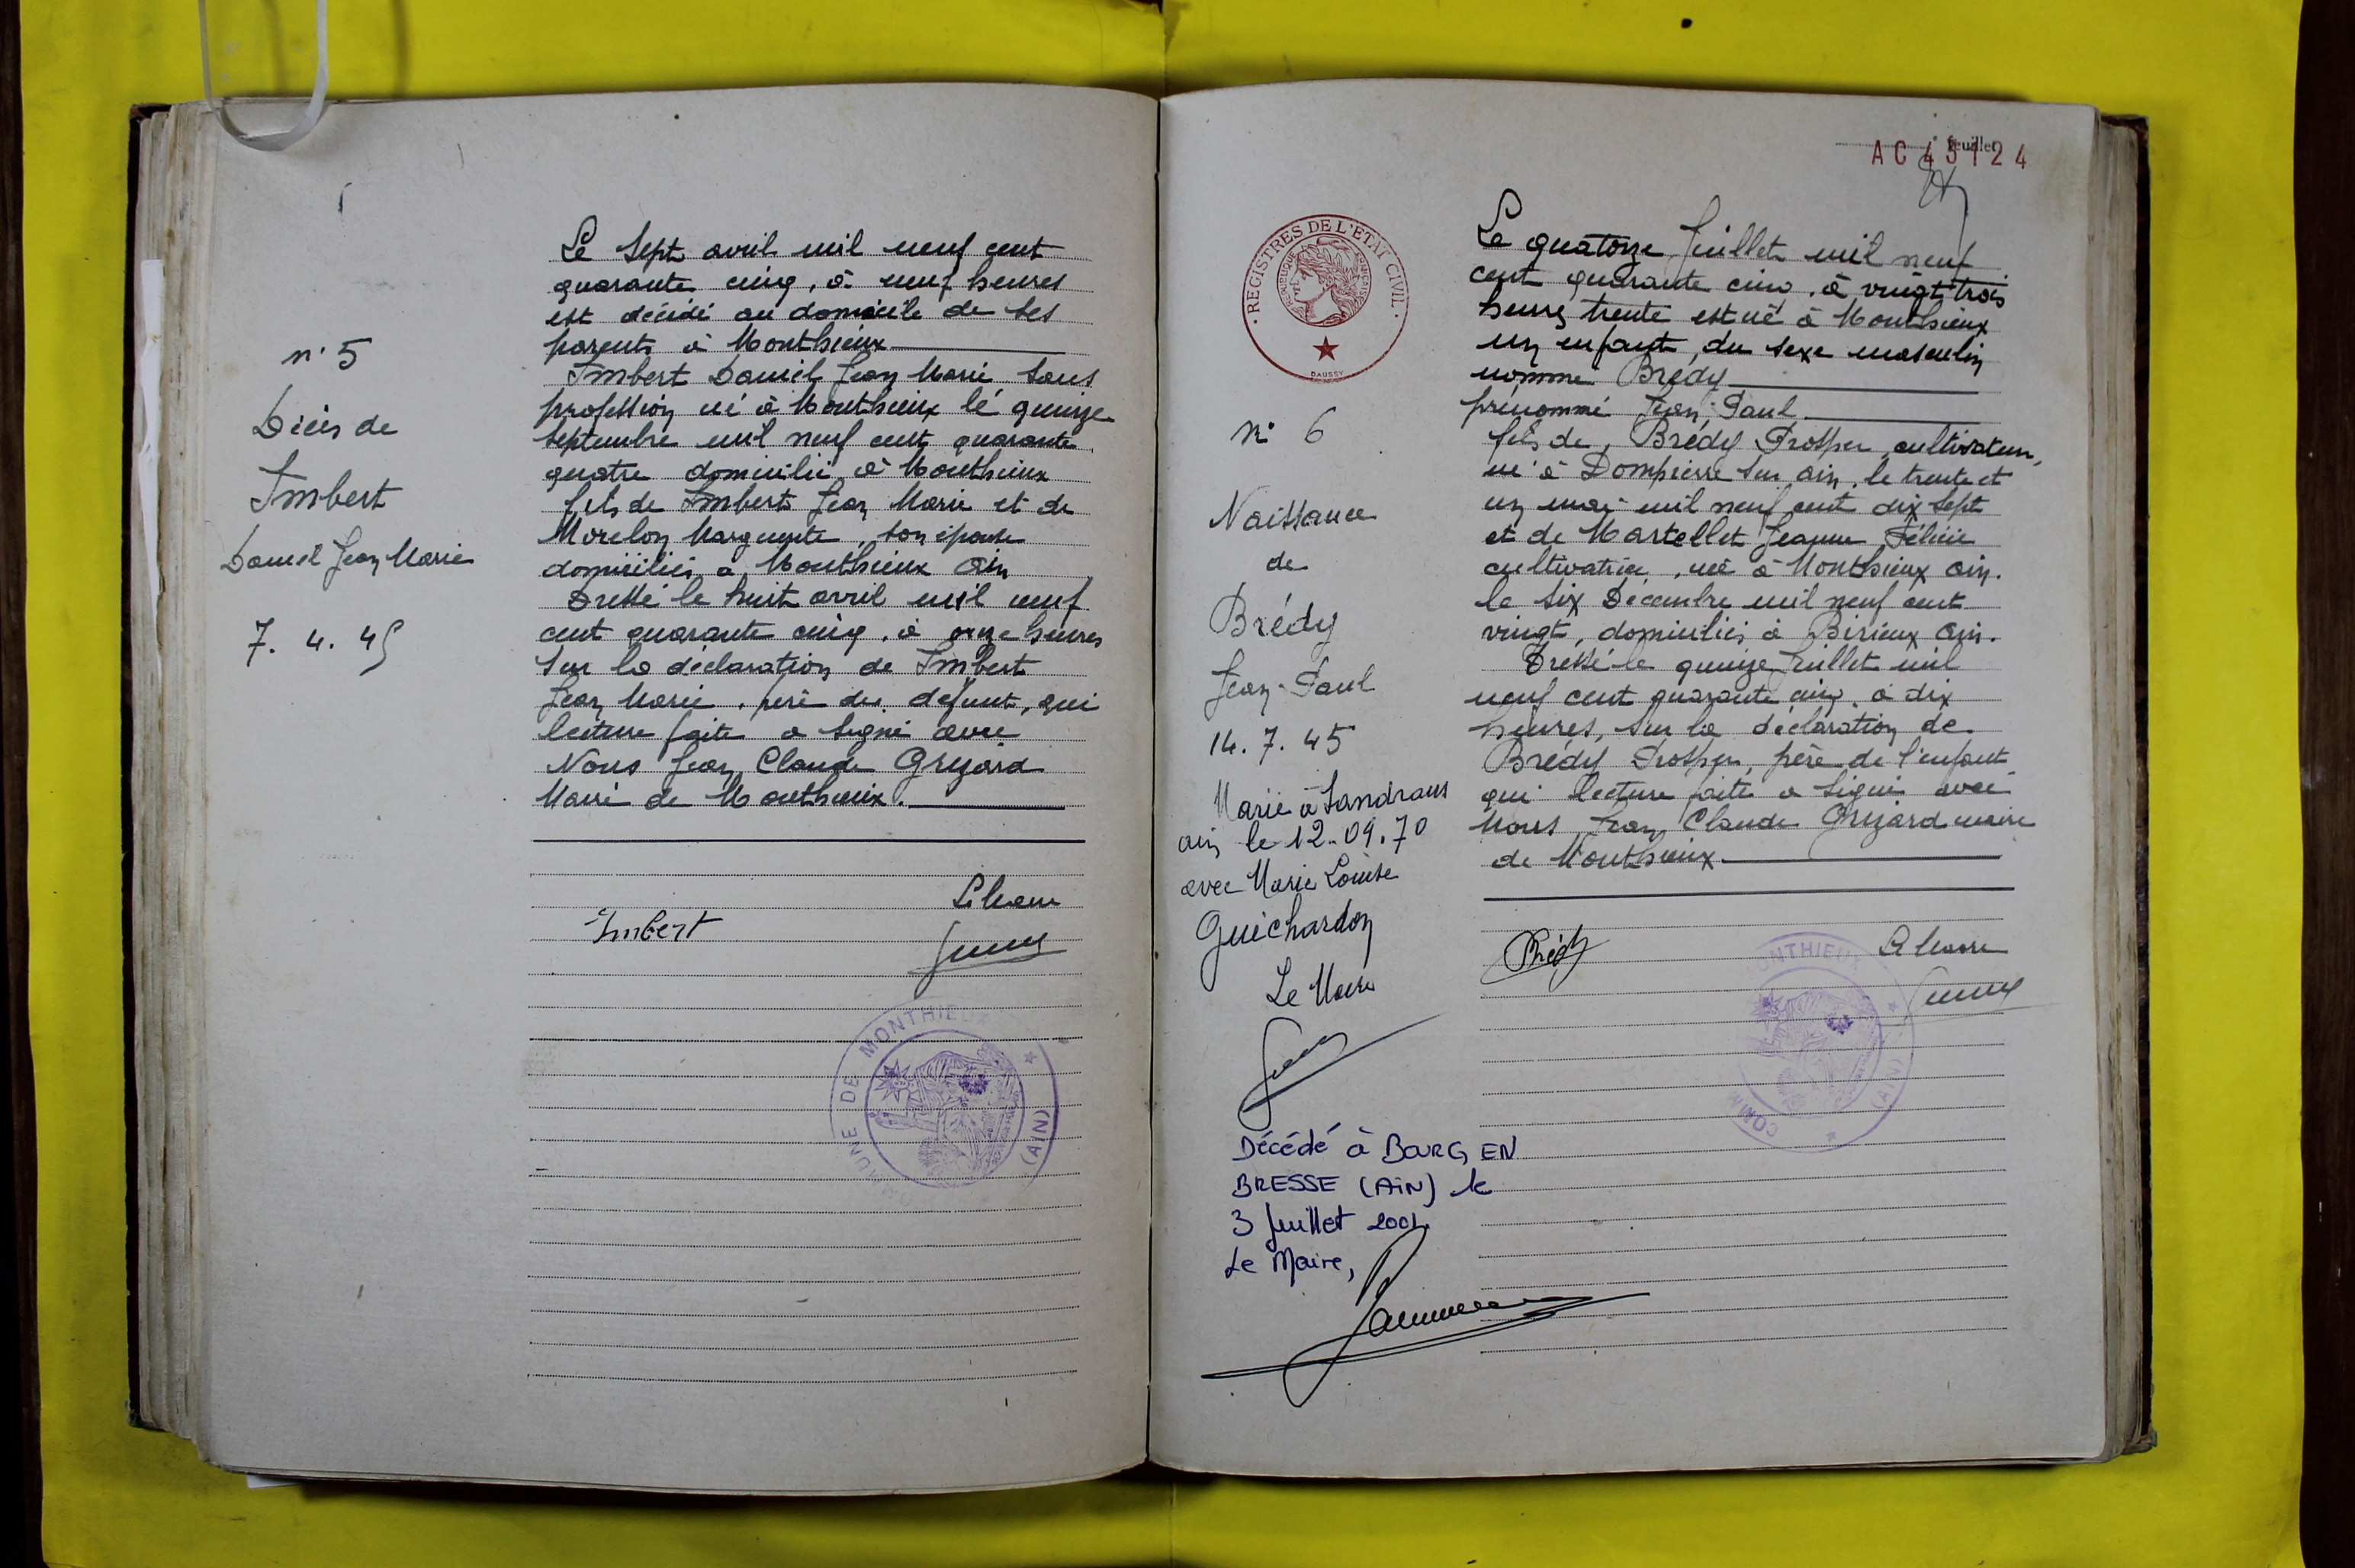 n° 5
Décès de
Imbert
Daniel Jean Marie
7. 4. 45
Le sept avril mil neuf cent
quarante cinq, à neuf heures
est décédé au domicile de ses
parents à Monthieux
Imbert Daniel Jean Marie sans
profession né à Monthieux le quinze
septembre mil neuf cent quarante
quatre domicilié à Monthieux
fils de Imbert Jean Marie et de
Morelon Marguerite, son épouse
domiciliés à Monthieux Ain
Dressé le huit avril mil neuf
cent quarante cinq, à onze heures
sur la déclaration de Imbert
Jean Marie, père du défunt, qui
lecture faite a signé avec
Nous Jean Claude Grizard
Maire de Monthieux.
Imbert
COMMUNE DE MONTHIEUX
(AIN)
feuillet
AC 43124
REGISTRES DE L'ETAT CIVIL
REPUBLIQUE FRANÇAISE
DAUSSY
n° 6
Naissance
de
Brédy
Jean-Paul
14. 7. 45
Marié à Sandrans
ain le 12.09.70
avec Marie Louise
Guichardon
Le Maire
Décédé à BOURG EN
BRESSE (AIN) le
3 Juillet
Le Maire,
Le quatorze Juillet mil neuf
cent quarante cinq, à vingt trois
heures trente est né à Monthieux
un enfant, du sexe masculin
nommé Brédy
prénommé Jean-Paul
fils de, Brédy Prosper, cultivateur,
né à Dompierre sur ain, le trente et
un mai mil neuf cent dix sept
et de Martellet Jeanne Félicie
cultivatrice, née à Monthieux ain.
le six Décembre mil neuf cent
vingt, domiciliés à Birieux ain.
Dressé le quinze Juillet mil
neuf cent quarante cinq, à dix
heures, sur la déclaration de
Brédy Prosper, père de l'enfant
qui lecture faite a signé avec
Nous Jean Claude Grizard maire
de Monthieux
Brédy
Le Maire
MONTHIEUX
(AIN)